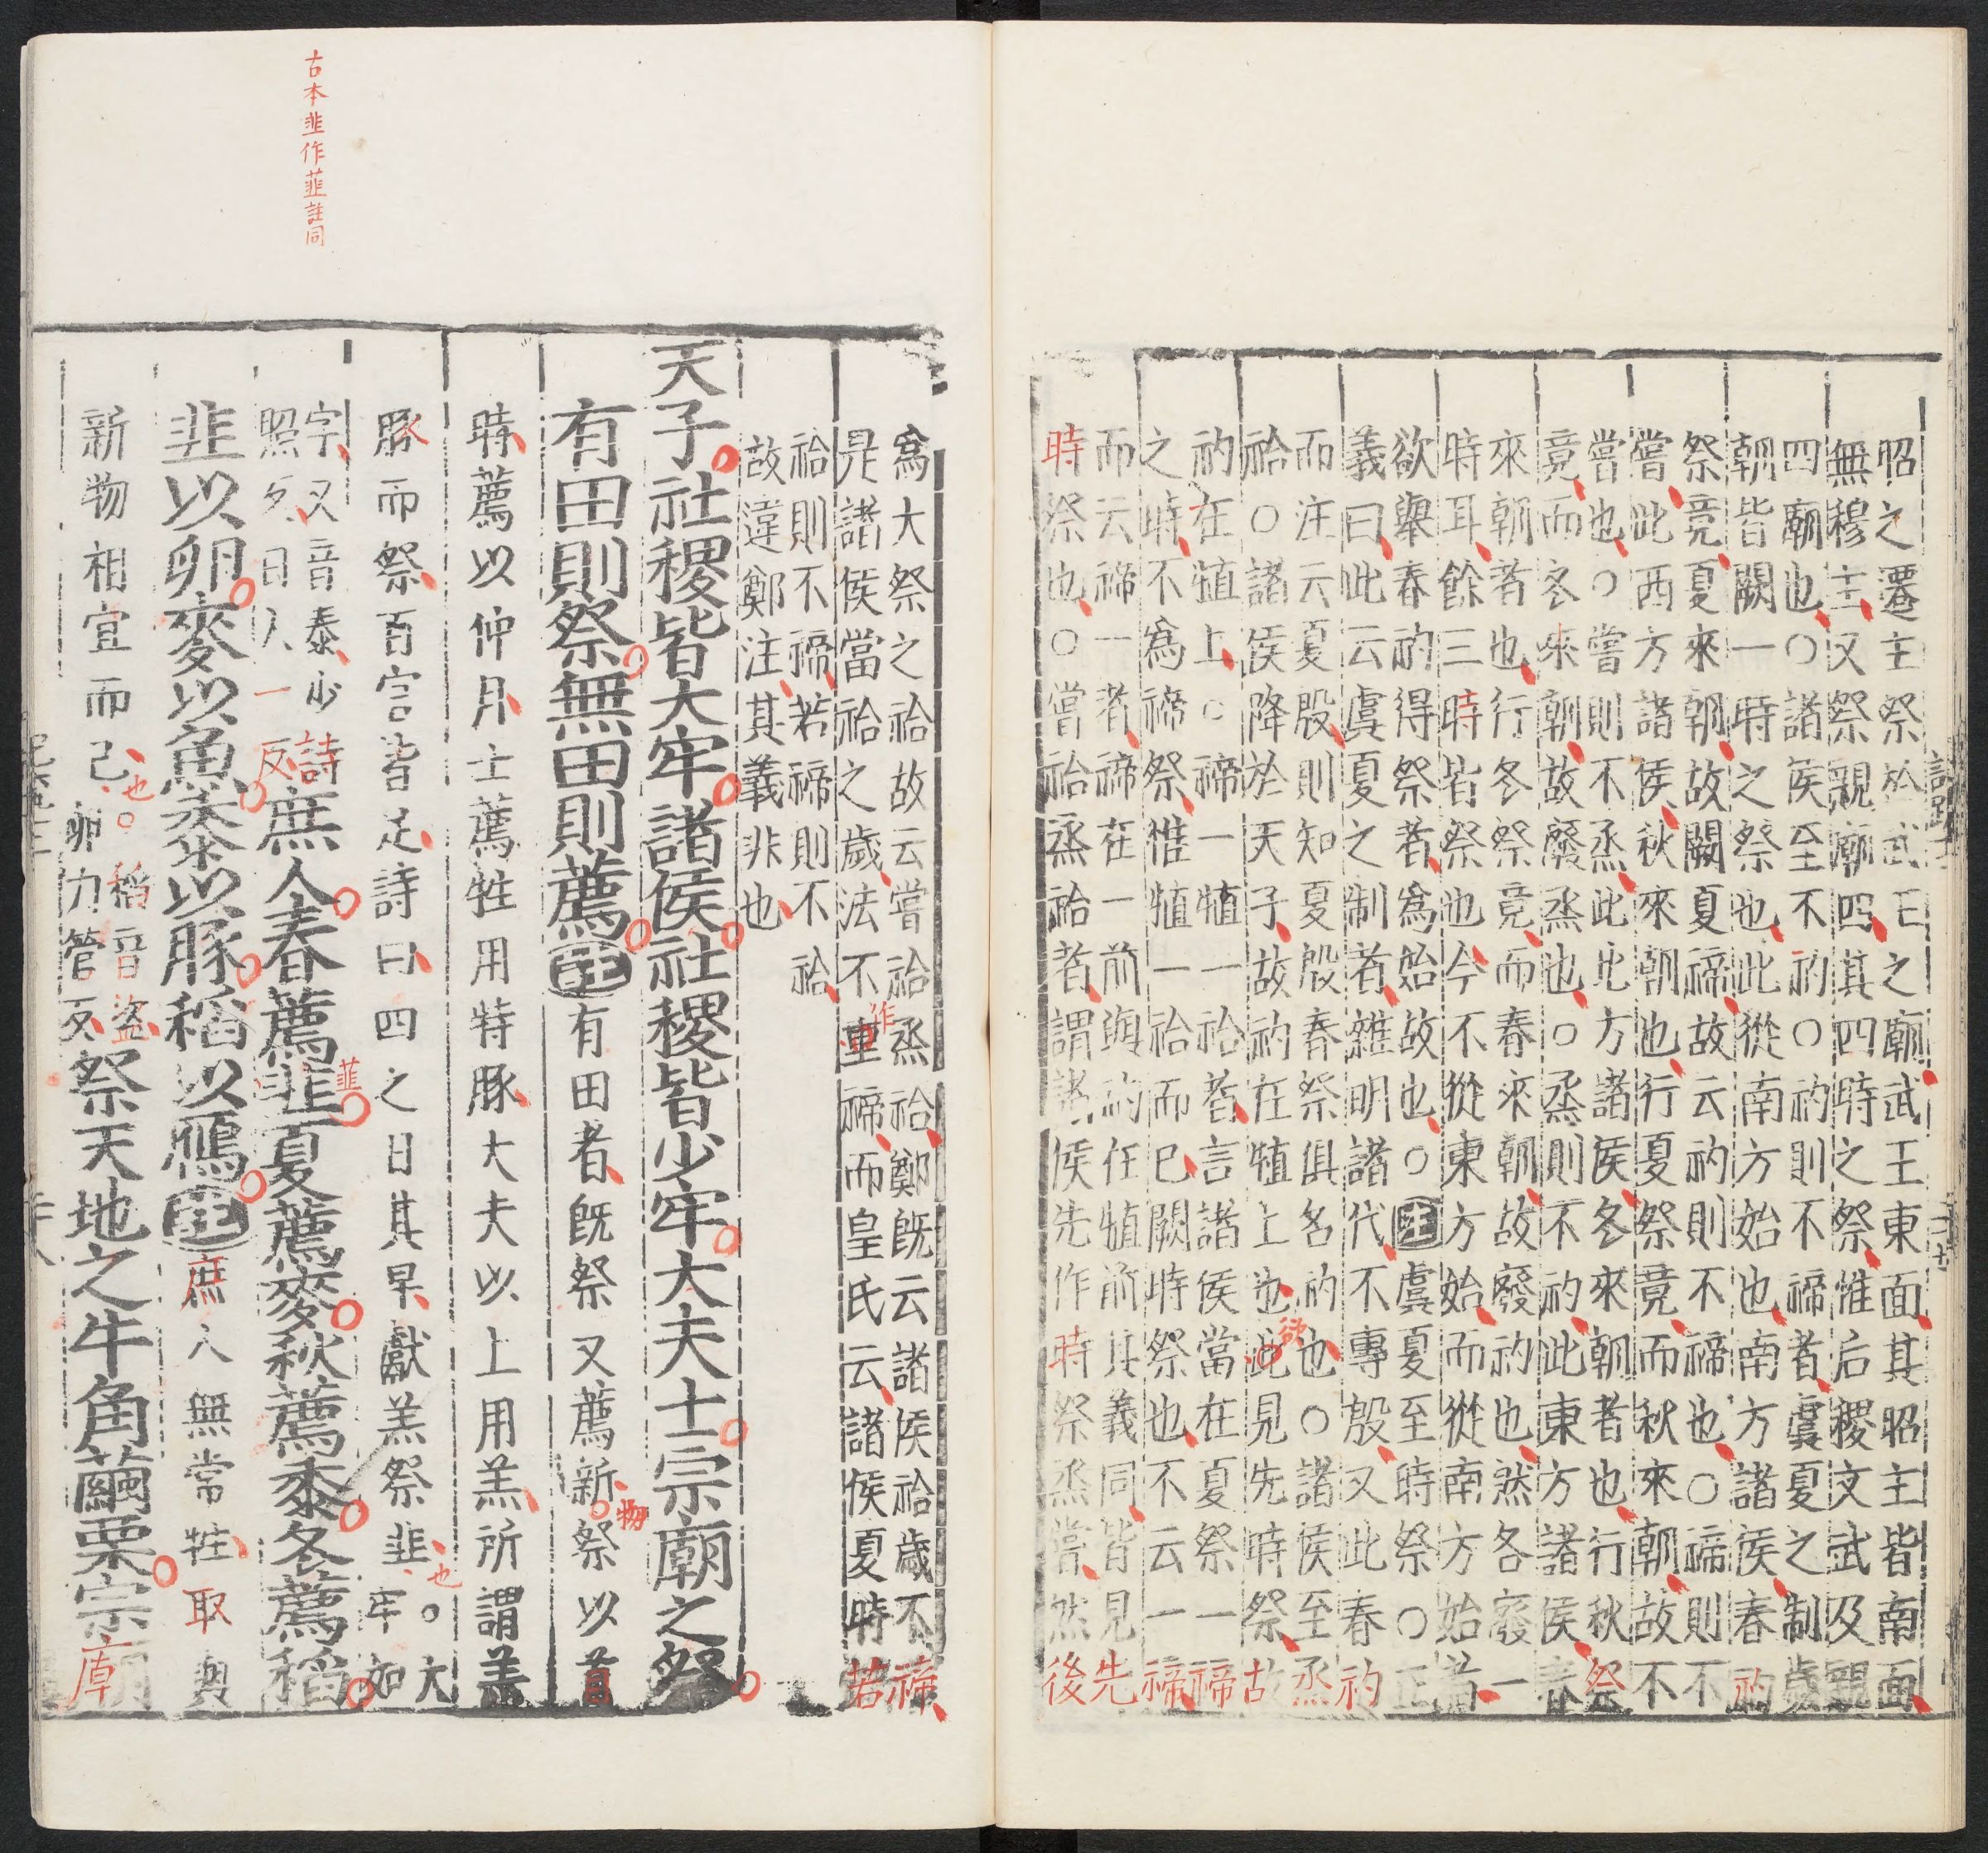 昭之遷主祭於武王之廟武王東面其昭主皆南面
無穆主又祭親廟四其四時之祭惟后稷文武及親
四廟也○諸侯至不礿○礿則不禘者虞夏之制歲
朝皆闕一時之祭也此從南方始也南方諸侯春礿
祭竟夏來朝故闕夏禘故云礿則不禘也○禘則不
嘗此西方諸侯秋來朝也行夏祭竟而秋來朝故不
嘗也○嘗則不烝此北方諸侯冬來朝者也行秋祭
竟而冬來朝故廢烝也○烝則不礿此東方諸侯春
來朝者也行冬祭竟而春來朝故廢礿也然各廢一
時耳餘三時皆祭也今不從東方始而從南方始者
欲舉春礿得祭者爲始故也○注虞夏至時祭○正
義曰此云虞夏之制者雜明諸代不專殷又此春礿
而注云夏殷則知夏殷春祭俱名礿也○諸侯至烝
祫○諸侯降於天子故礿在犆上也此欲見先時祭故
礿在犆上○禘一犆一祫者言諸侯當在夏祭一禘
之時不爲禘祭惟犆一祫而已闕時祭也不云一禘
而云禘一者禘在一前與礿在犆前其義同皆見先
時祭也○嘗祫烝祫者謂諸侯先作時祭烝嘗然後
爲大祭之祫故云嘗祫烝祫鄭既云諸侯祫歲不禘
是諸侯當祫之歲法不重作禘而皇氏云諸侯夏時若
祫則不禘若禘則不祫
故違鄭注其義非也
天子社稷皆大牢諸侯社稷皆少牢大夫士宗廟之祭
有田則祭無田則薦注有田者既祭又薦新物祭以首
時薦以仲月士薦牲用特豚大夫以上用羔所謂羔
豚而祭百官皆足詩曰四之日其早獻羔祭韭也○大牢如
字又音泰少詩照反曰人一反庶人春薦韭韮夏薦麥秋薦黍冬薦稻
韭以卵麥以魚黍以豚稻以鴈注庶人無常牲取與
新物相宜而已也○稻音盜卵力管反祭天地之牛角繭栗宗廟
古本韭作韮註同